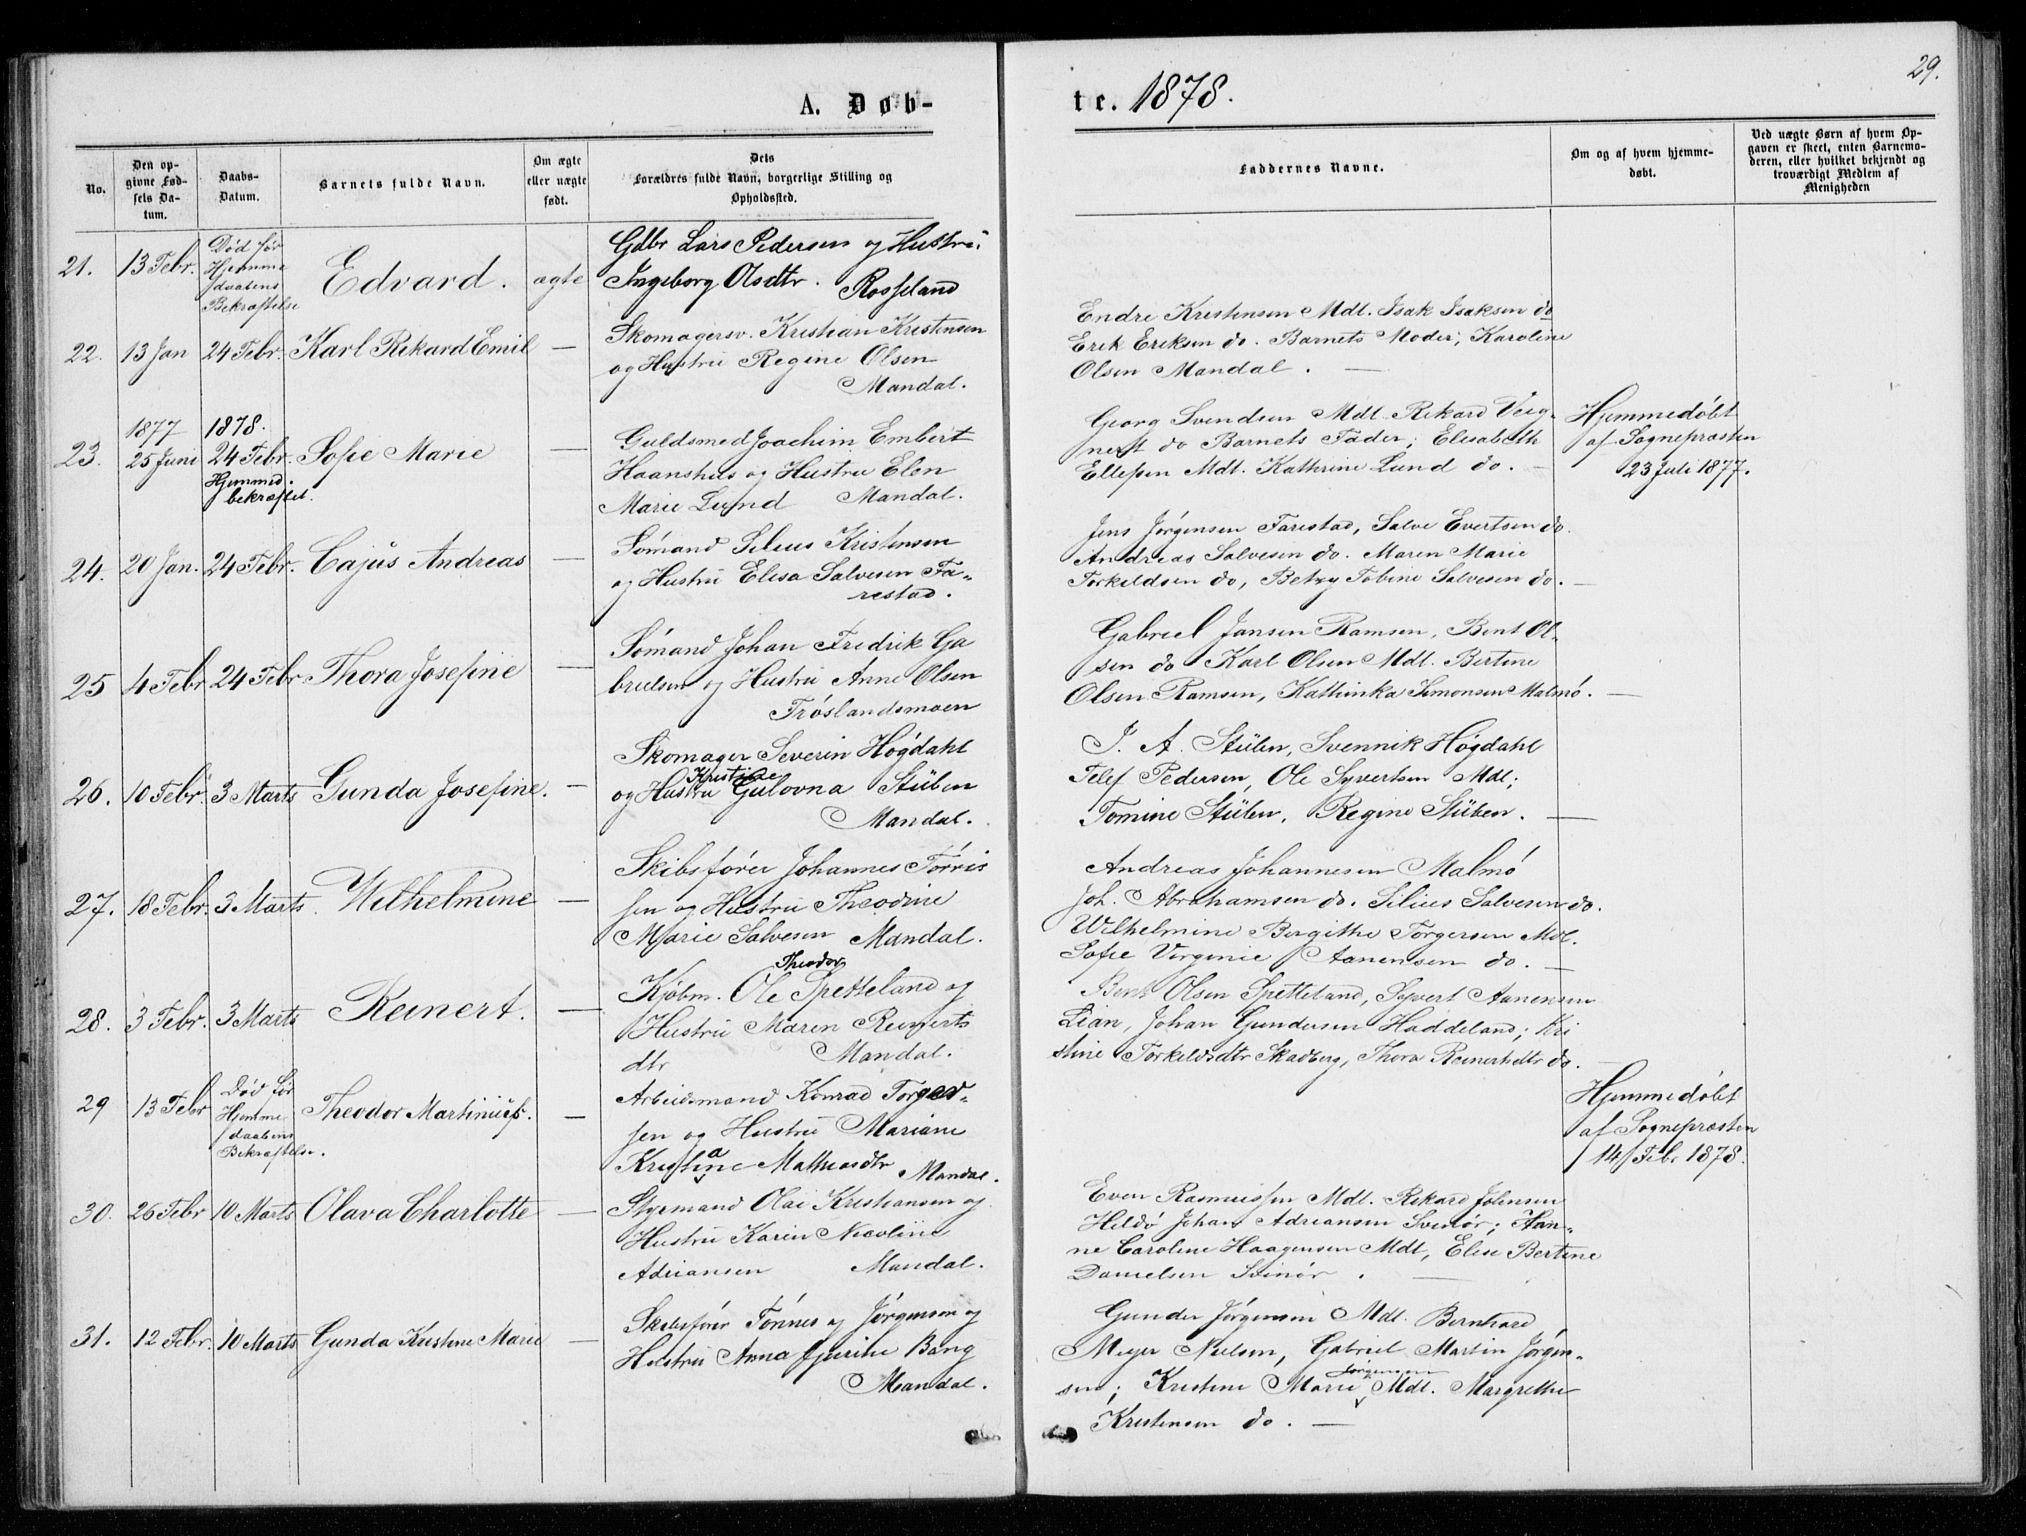 29.
A. Døb-
te. 1878.
No.
Den op-
givne Fød-
sels Da-
tum.
Daabs-
Datum.
Barnets fulde Navn.
Om ægte
eller uægte
født.
Dets
Forældres fulde Navn, borgerlige Stilling og
Opholdssted.
Faddernes Navne.
Om og af hvem hjemme-
døbt.
Ved uægte Børn af hvem Op-
gaven er skeet, enten Barnemo-
deren, eller hvilket bekjendt og
troværdigt Medlem af
Menigheden
21. 13 Febr.
Død før
Hjemme
daabens
Bekræftelse
Edvard.
ægte
Gdbr Lars Pedersen og Hustru
Ingeborg Olsdtr.
Rosseland
22. 13 Jan 24 Febr. Karl Rikard Emil —
Skomagersv. Kristian Kristensen
og Hustru Regine Olsen
Mandal.
Endre Kristensen Mdl. Isak Isaksen do
Erik Eriksen do. Barnets Moder; Karoline
Olsen Mandal. —
23.
1877
25 Juni
1878.
24 Febr.
Hjemmed.
bekræftet.
Sofie Marie —
Guldsmed Joachim Embert
Haanshus og Hustru Elen
Marie Lund Mandal.
Georg Svendsen Mdl. Rikard Veig-
nert do Barnets Fader; Elisabeth
Ellefsen Mdl. Kathrine Lund do. —
Hjemmedøbt
af Sognepræsten
23 Juli 1877.
24. 20 Jan. 24 Febr. Cajus Andreas —
Sømand Silius Kristensen
og Hustru Elisa Salvesen Fa-
restad.
Jens Jørgensen Farestad, Salve Evertsen do.
Andreas Salvesen do. Maren Marie
Torkildsen do, Betzy Tobine Salvesen do. —
25 4 Febr 24 Febr Thora Josefine —
Sømand Johan Fredrik Ga
brielsen og Hustru Anne Olsen
Frøslandsmoen
Gabriel Jansen Ramsen, Bent Ol-
sen do Karl Olsen Mdl. Bertine
Olsen Ramsen, Kathinka Simonsen Malmø. —
26. 10 Febr. 3 Marts Gunda Josefine. —
Skomager Severin Høgdahl
Kristine
og Hustru Gulovna Stüben
Mandal.
J. A. Stüben, Svennik Høgdahl
Tellef Pedersen, Ole Syvertsen Mdl;
Tomine Stüben, Regine Stüben. —
27. 18 Febr. 3 Marts. Wilhelmine —
Skibsfører Johannes Tørris
sen og Hustru Theodine
Marie Salvesen Mandal.
Andreas Johannesen Malmø
Joh. Abrahamsen do. Silius Salvesen do.
Wilhelmine Birgithe Torgersen Mdl.
Sofie Virginie Aanensen do. —
28. 3 Febr. 3 Marts Reinert. —
Theodor
Kjøbm. Ole Spetteland og
Hustru Maren Reinerts
dtr Mandal.
Bent Olsen Spetteland, Syvert Aanensen
Lian, Johan Gundersen Haddeland; Kri
stine Torkildsdtr Skadberg, Thora Reinertsdtr do.
29 13 Febr
Død før
Hjemme
daabens
Bekræftelse.
Theodor Martinius. —
Arbeidsmand Konrad Torger-
sen og Hustru Mariane
Kristine Mathiasdtr Mandal.
Hjemmedøbt
af Sognepræsten
14 Feb. 1878.
30. 26 Febr 10 Marts Olava Charlotte —
Styrmand Olai Kristiansen og
Hustru Karin Nicoline
Adriansen Mandal.
Even Rasmussen Mdl. Rikard Johnsen
Hildø Johan Adriansen Svinør; Han-
ne Caroline Haagensen Mdl, Elise Bertine
Danielsen Svinør. —
31. 12 Febr. 10 Marts Gunda Kristine Marie —
Skibsfører Tønnes Jørgensen og
Hustru Anna Gurine Bang
Mandal.
Gunder Jørgensen Mdl. Bernhard
Meyer Nielsen, Gabriel Martin Jørgen-
Jørgensen
sen; Kristine Marie Mdl. Margrethe
Kristensen do. —